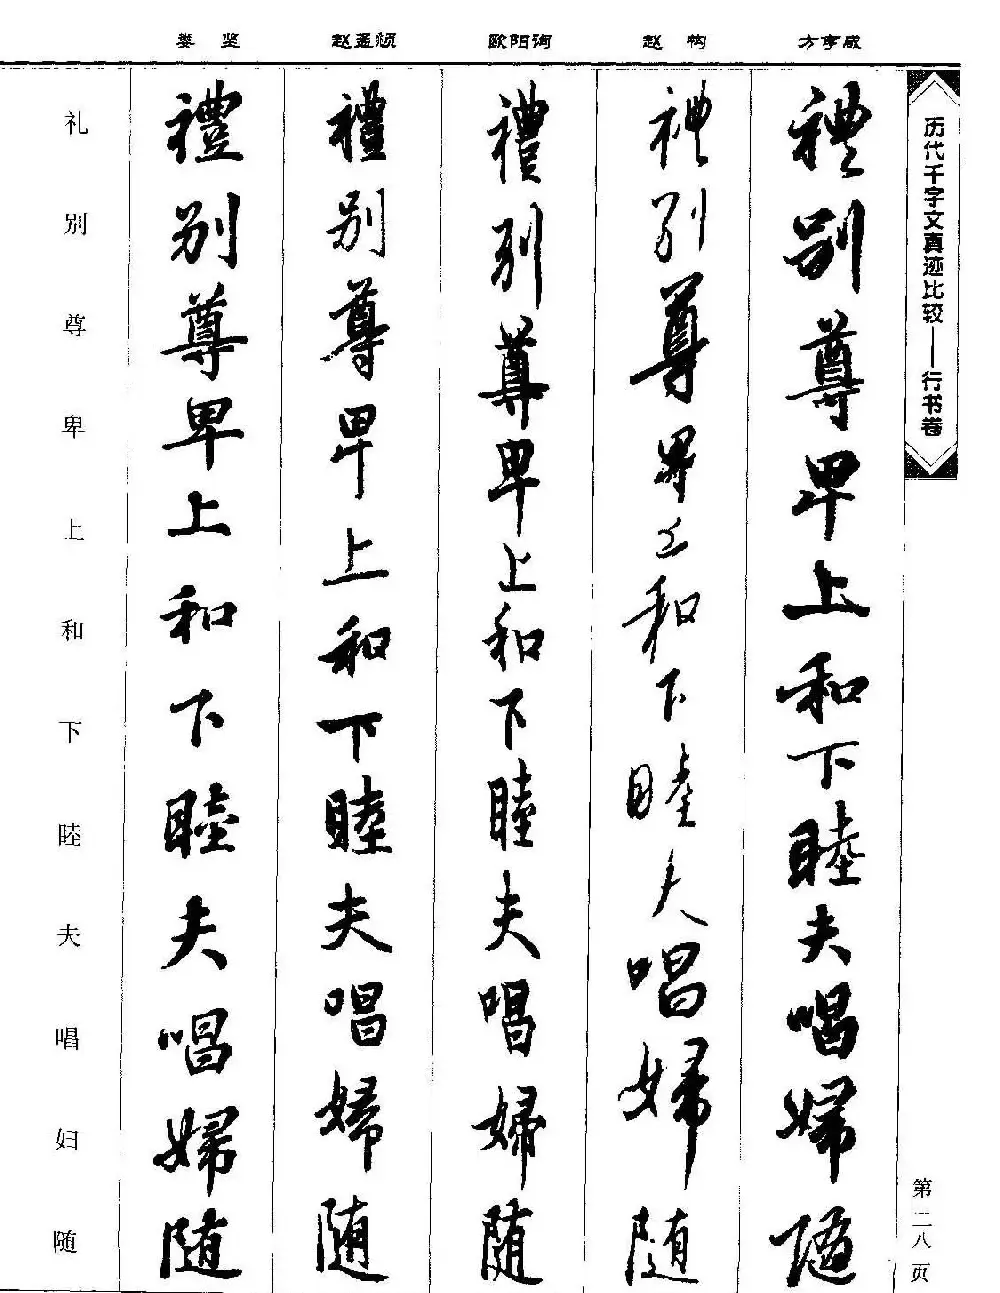 娄坚 赵孟頫 欧阳询 赵构 方孝孺
历代千字文真迹比较——行书卷
禮别尊卑上和下睦夫唱婦随
禮别尊卑上和下睦夫唱婦随
禮别尊卑上和下睦夫唱婦随
禮别尊卑上和下睦夫唱婦随
禮别尊卑上和下睦夫唱婦随
礼别尊卑上和下睦夫唱妇随
第二八页